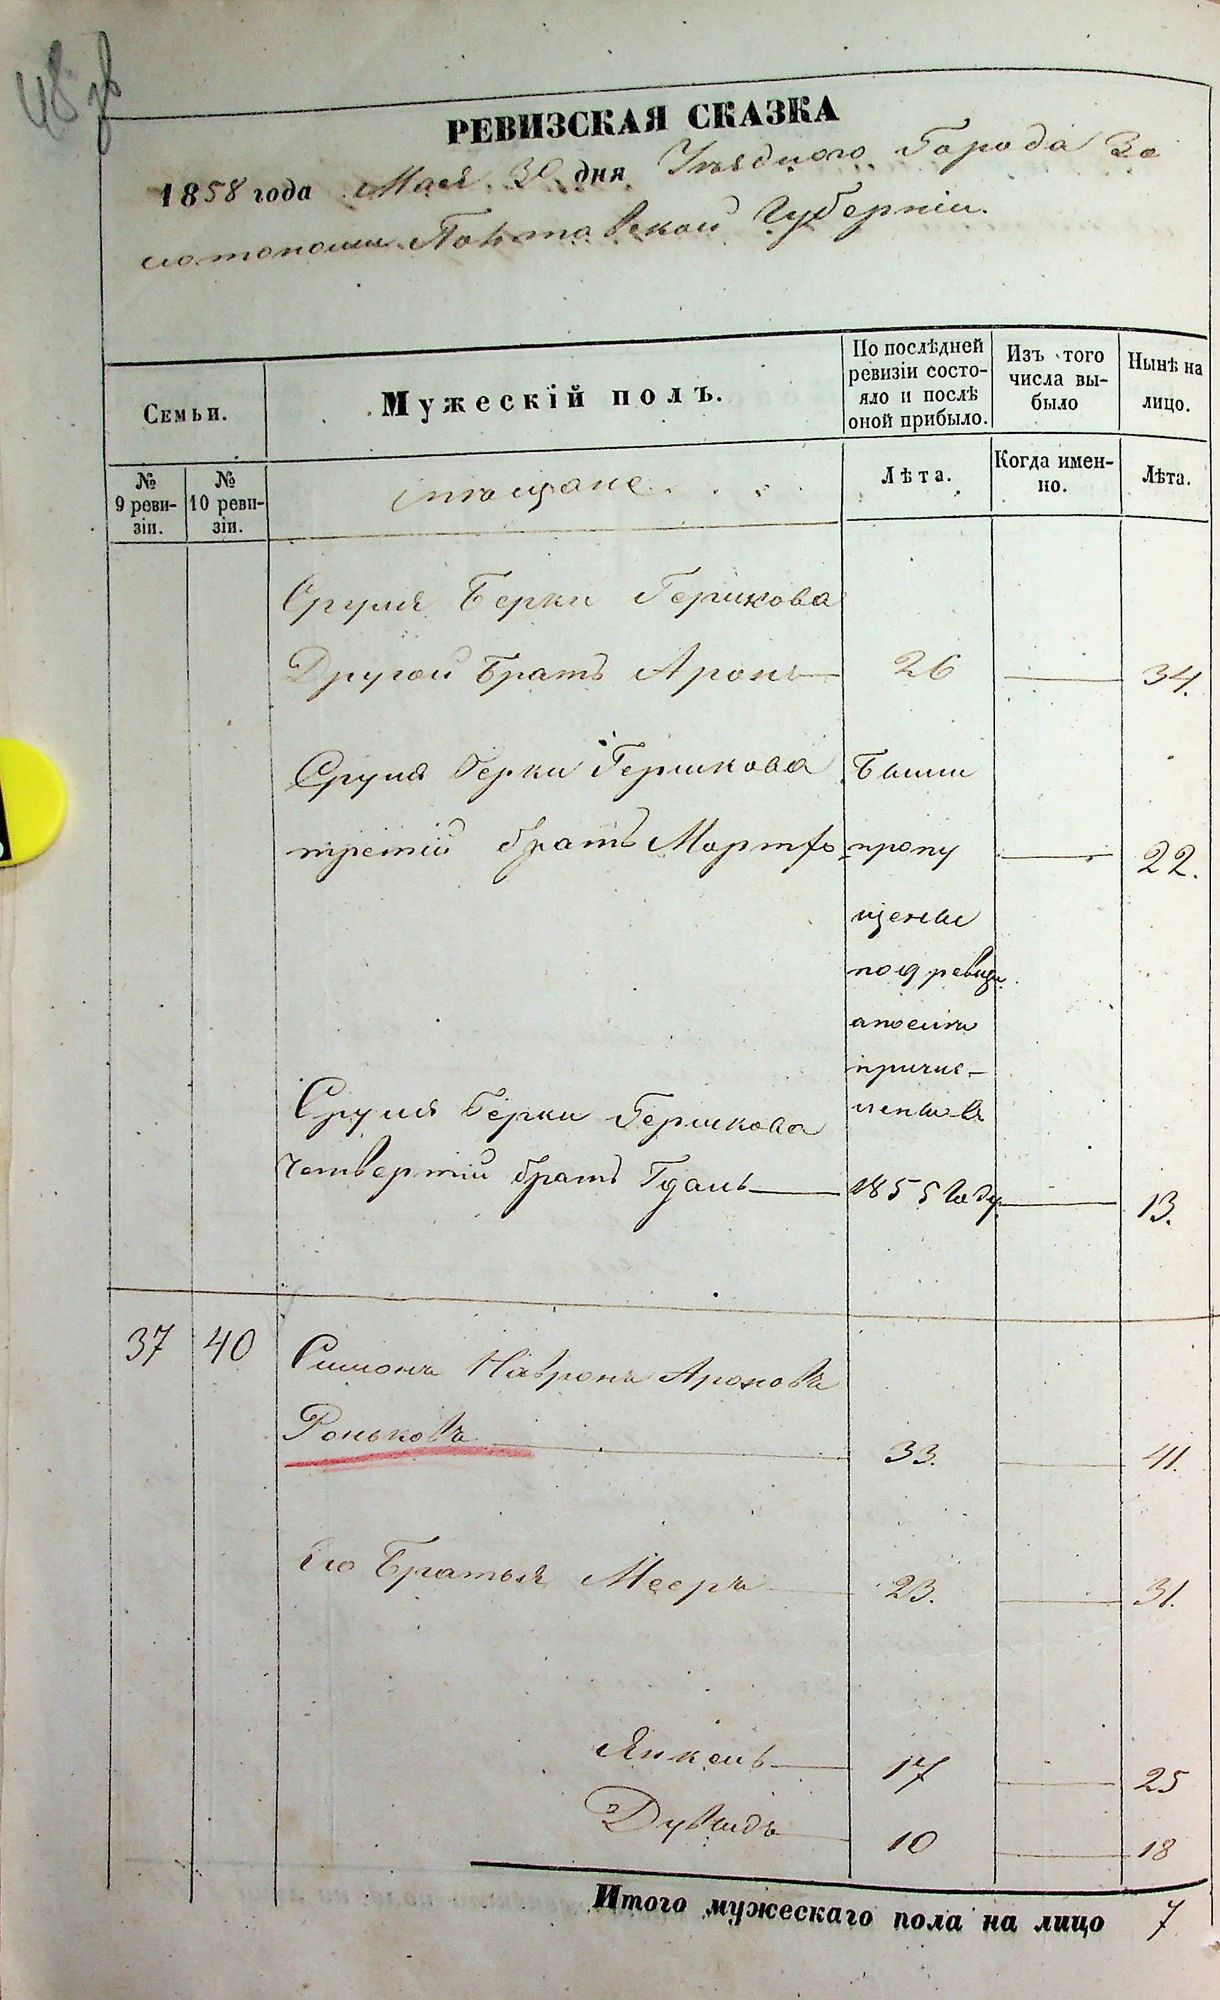 48 зв
РЕВИЗСКАЯ СКАЗКА
1858 года Мая 30 дня Уѣзднаго Города Зо
лотоноши Полтавской Губерніи.
Семьи.
Мужескій полъ.
По послѣдней ревизіи состояло и послѣ оной прибыло.
Изъ того числа выбыло
Нынѣ на лицо.
№ 9 ревизіи.
№ 10 ревизіи.
мѣщане
Лѣта.
Когда именно.
Лѣта.
Сруля Берки Гершкова
Другой братъ Аронъ 26 34.
Сруля Берки Гершкова Были
третій братъ пропу 22.
щены
по 9 ревизи
а после
причис-
лены в
Сруля Берки Гершкова
четвертій братъ 1855 году 13.
37 40 Симонъ Ароновъ
Роньковъ 33. 41.
Его Братья Мееръ 23. 31.
Янкель 17 25
Дувидъ 10 18
Итого мужескаго пола на лицо 7